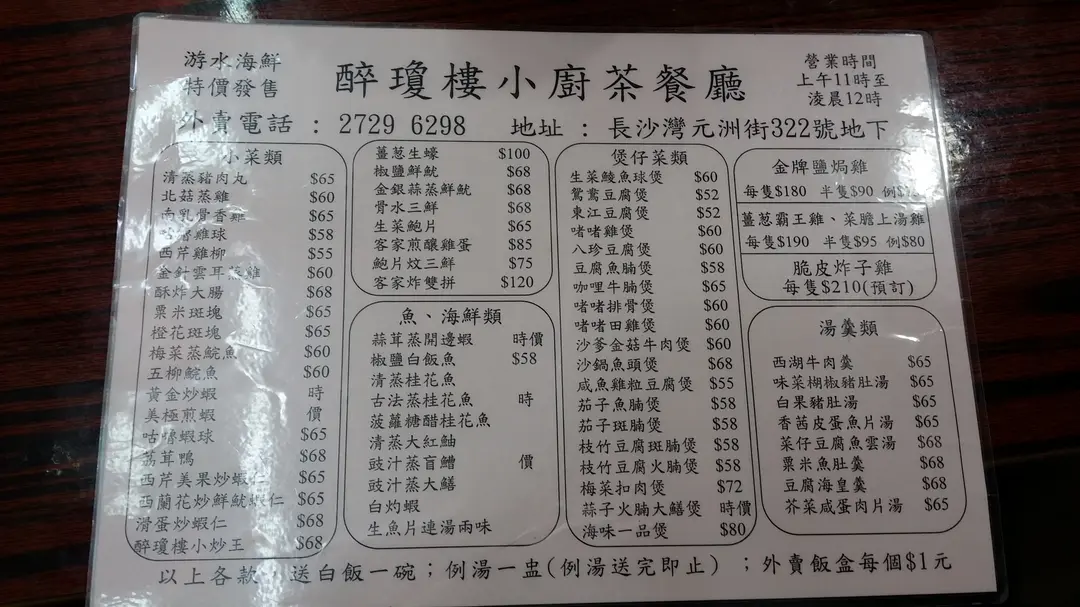 游水海鮮
特價發售
醉瓊樓小廚茶餐廳
營業時間
上午11時至
凌晨12時
外賣電話 : 2729 6298 地址 : 長沙灣元洲街322號地下
小菜類
清蒸豬肉丸 $65
北菇蒸雞 $60
南乳骨香雞 $65
咕嚕雞球 $58
西芹雞柳 $55
金針雲耳蒸雞 $60
酥炸大腸 $68
粟米斑塊 $65
橙花斑塊 $65
梅菜蒸鯇魚 $60
五柳鯇魚 $60
黃金炒蝦 時
美極煎蝦 價
咕嚕蝦球 $65
荔茸鴨 $68
西芹美果炒蝦仁 $65
西蘭花炒鮮魷蝦仁 $65
滑蛋炒蝦仁 $68
醉瓊樓小炒王 $68
薑蔥生蠔 $100
椒鹽鮮魷 $68
金銀蒜蒸鮮魷 $68
骨水三鮮 $68
生菜鮑片 $65
客家煎釀雞蛋 $85
鮑片炆三鮮 $75
客家炸雙拼 $120
魚、海鮮類
蒜茸蒸開邊蝦 時價
椒鹽白飯魚 $58
清蒸桂花魚
古法蒸桂花魚 時
菠蘿糖醋桂花魚
清蒸大紅鮋
豉汁蒸盲鰽 價
豉汁蒸大鱔
白灼蝦
生魚片連湯兩味
煲仔菜類
生菜鯪魚球煲 $60
鴛鴦豆腐煲 $52
東江豆腐煲 $52
啫啫雞煲 $60
八珍豆腐煲 $60
豆腐魚腩煲 $58
咖哩牛腩煲 $65
啫啫排骨煲 $60
啫啫田雞煲 $60
沙爹金菇牛肉煲 $60
沙鍋魚頭煲 $68
咸魚雞粒豆腐煲 $55
茄子魚腩煲 $58
茄子斑腩煲 $58
枝竹豆腐斑腩煲 $58
枝竹豆腐火腩煲 $58
梅菜扣肉煲 $72
蒜子火腩大鱔煲 時價
海味一品煲 $80
金牌鹽焗雞
每隻$180 半隻$90 例
薑蔥霸王雞、菜膽上湯雞
每隻$190 半隻$95 例$80
脆皮炸子雞
每隻$210(預訂)
湯羹類
西湖牛肉羹 $65
味菜椒豬肚湯 $65
白果豬肚湯 $65
香茜皮蛋魚片湯 $65
菜仔豆腐魚雲湯 $68
粟米魚肚羹 $68
豆腐海皇羹 $68
芥菜咸蛋肉片湯 $65
以上各款 送白飯一碗；例湯一盅(例湯送完即止) ；外賣飯盒每個$1元